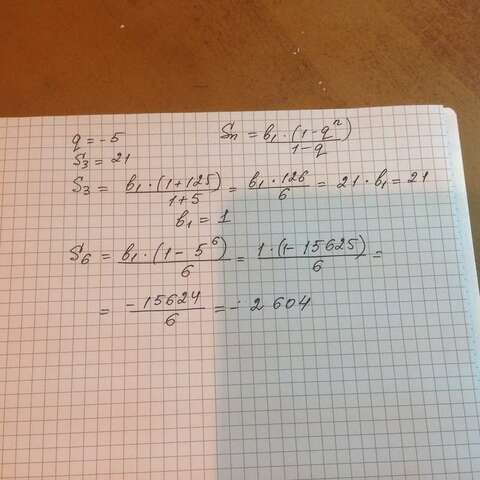 q = -5 Sn = b₁·(1-qⁿ)/1-q
S₃ = 21
S₃ = b₁·(1+125)/1+5 = b₁·126/6 = 21·b₁ = 21
b₁ = 1
S₆ = b₁·(1-5⁶)/6 = 1·(1-15625)/6 =
= -15624/6 = -2 604